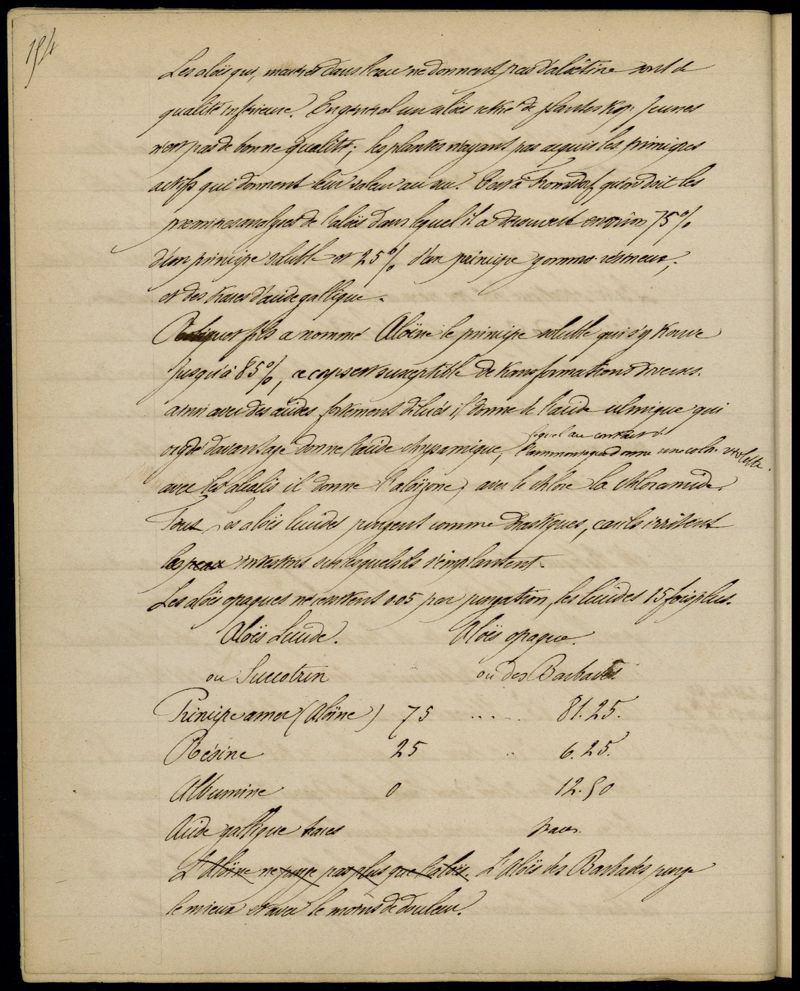 194
Les aloës qui, mactés dans l'eau ne donnent pas d'aloëtine sont de
qualité inférieure. En général un aloës retiré de plantes trop jeunes
n'est pas de bonne qualité; les plantes n'ayant pas acquis les principes
actifs qui donnent leur valeur au suc. C'est à qu'on doit les
premières analyses de l'aloës dans lequel il a découvert environ 75%
d'un principe soluble et 25% d'un principe gommo-résineux,
et des traces d'acide gallique.
fils a nommé Aloëne le principe soluble qui s'y trouve
jusqu'à 85%, ce corps est susceptible de transformations diverses.
ainsi avec des acides fortement dilués il donne de l'acide ulmique qui
oxydé davantage donne l'acide chrysamique, lequel au contact de
l'ammoniaque donne une color. violette.
avec les alcalis il donne l'aloëzone, avec le chlore la chloramide.
Tous les aloës lucides purgent comme drastiques, car ils irritent
les intestins sur lesquels ils s'implantent.
Les aloës opaques nécessitent 0.05 par purgation, les lucides 15 fois plus.
Aloës Lucide. Aloës opaque.
ou Succotrin ou des Barbades
Principe amer (Aloëne) 75 ..... 81.25.
Résine 25 " 6.25.
Albumine 0 12.50
Acide gallique traces traces
L'Aloëne ne purge pas plus que l'aloës. L'Aloës des Barbades purge
le mieux et avec le moins de douleur.